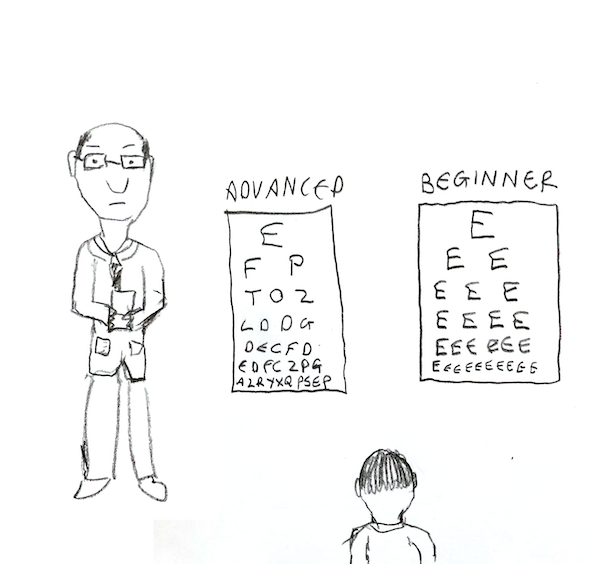 ADVANCED
E
F P
T O Z
L D D G
D E C F D
E D F C Z P G
A Z R Y X Q P S E P
BEGINNER
E
E E
E E E
E E E E
E E E E E E
E E E E E E E E E E